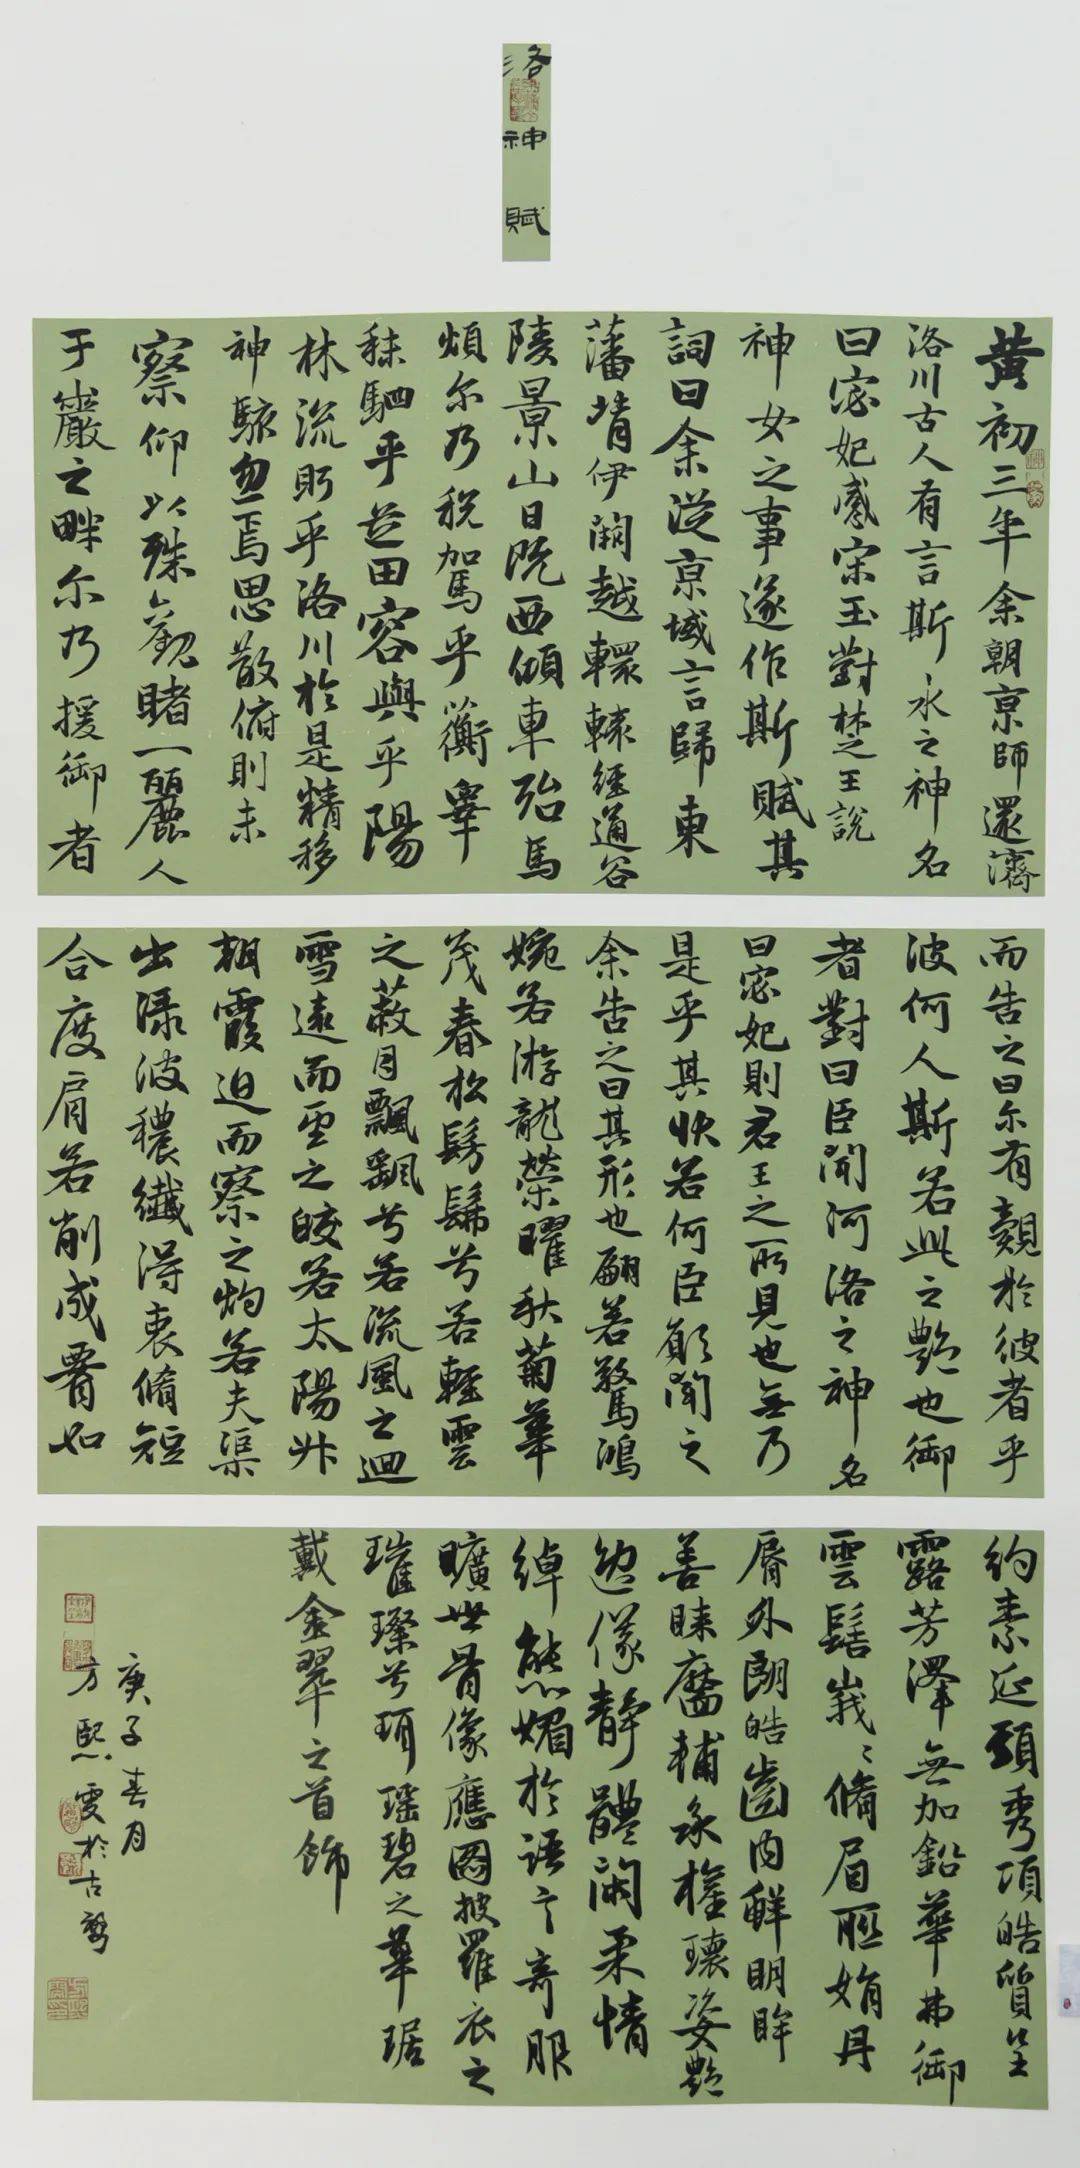 洛神賦
黃初三年余朝京師還濟
洛川古人有言斯水之神名
曰宓妃感宋玉對楚王說
神女之事遂作斯賦其
詞曰余從京域言歸東
藩背伊闕越轘轅經通谷
陵景山日既西傾車殆馬
煩尔乃稅駕乎蘅皋
秣駟乎芝田容與乎陽
林流眄乎洛川於是精移
神駭忽焉思散俯則未
察仰以殊觀睹一麗人
于巖之畔尔乃援御者
而告之曰尔有覿於彼者乎
彼何人斯若此之艷也御
者對曰臣聞河洛之神名
曰宓妃則君王之所見也無乃
是乎其狀若何臣願聞之
余告之曰其形也翩若驚鴻
婉若游龍榮曜秋菊華
茂春松髣髴兮若輕雲
之蔽月飄颻兮若流風之迴
雪遠而望之皎若太陽升
朝霞迫而察之灼若夫渠
出淥波穠纖得衷脩短
合度肩若削成腰如
約素延頸秀項皓質呈
露芳澤無加鉛華弗御
雲髻峩〻脩眉聯娟丹
脣外朗皓齒內鮮明眸
善睞靨輔承權瓌姿艷
逸儀靜體閑柔情
綽態媚於語言奇服
曠世骨像應圖披羅衣之
璀璨兮珥瑤碧之華琚
戴金翠之首飾
庚子春月
方熙雯於古婺